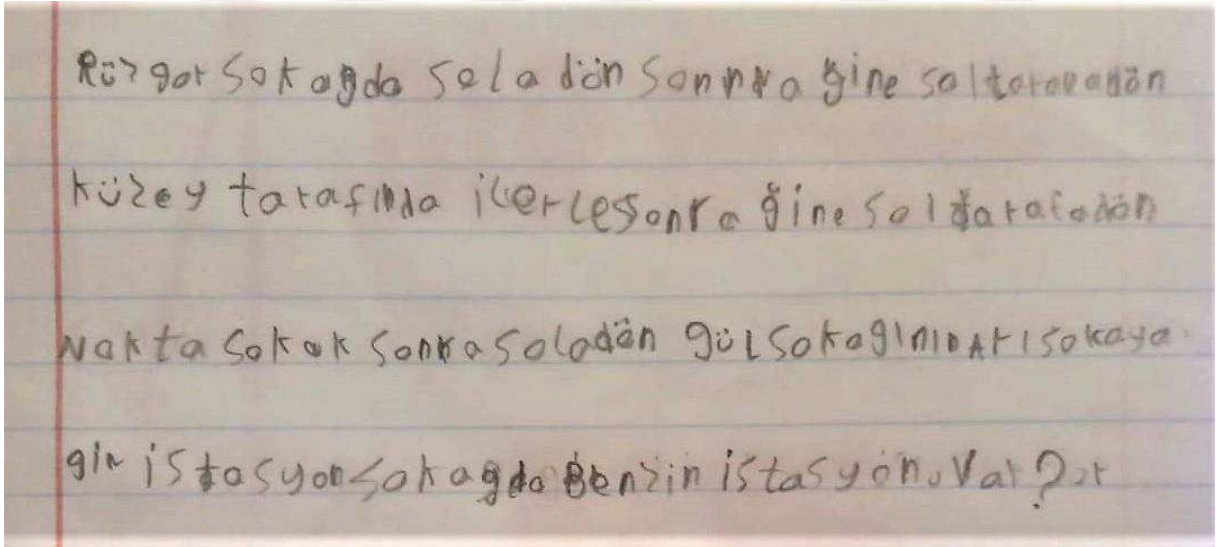 Rüzgar Sokagda Sola dön Sonnra ğine sol taravadön
küzey tarafında ilerle Sonra ğine Sol tarafadön
Nokta Sokak Sonra Soladön gül Sokagını Arı sokaya
gir istasyon Sokagda Benzin istasyonu Var